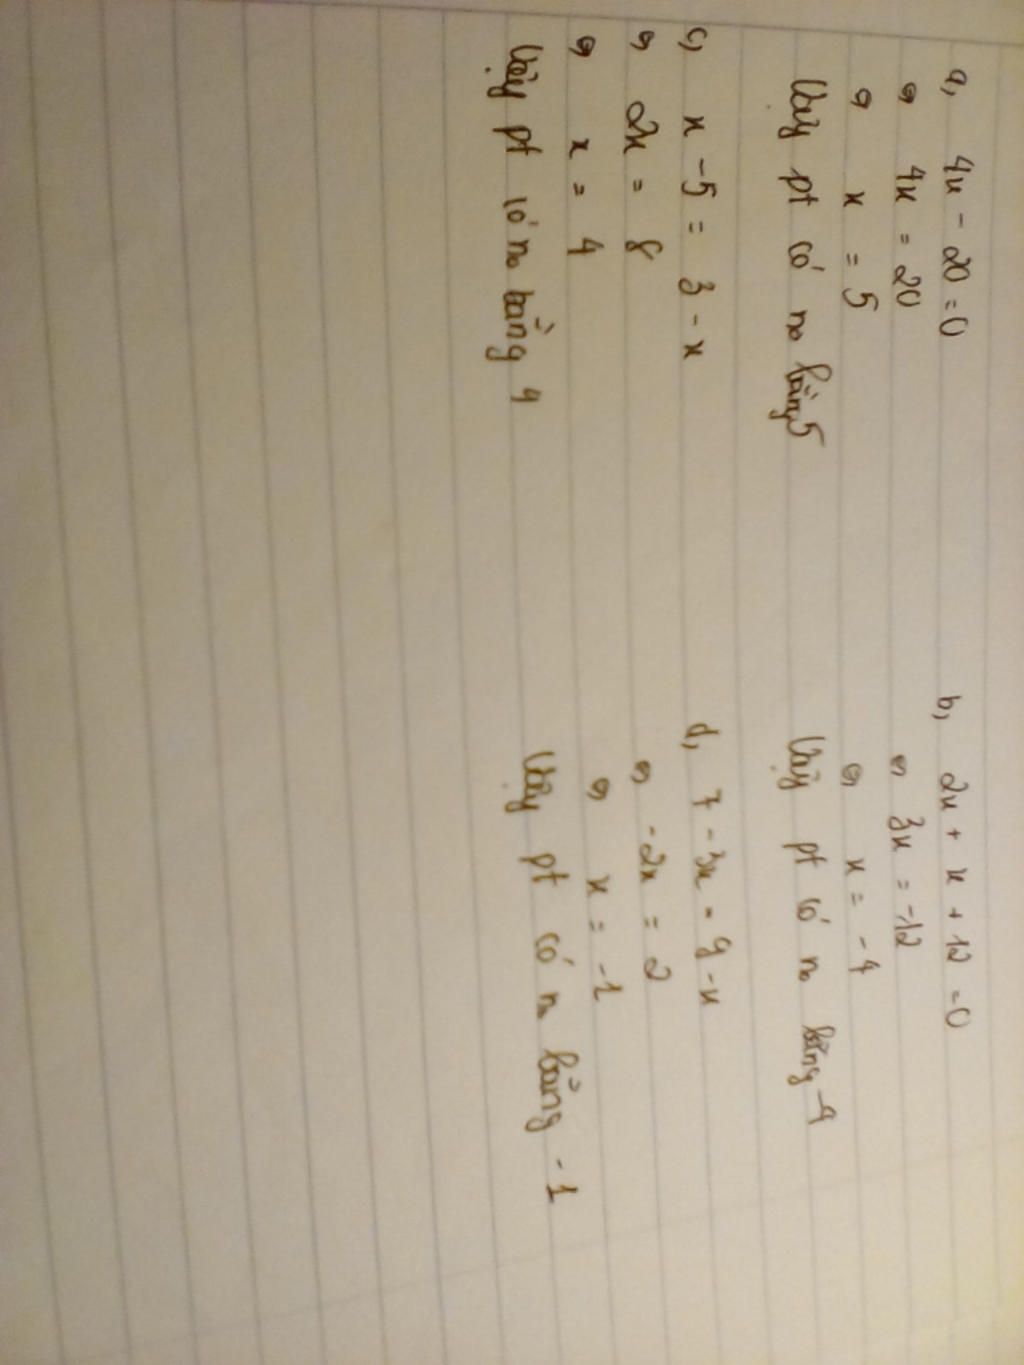 a, 4x - 20 = 0
⇔ 4x = 20
⇔ x = 5
Vậy pt có no bằng 5
b, 2x + x + 12 = 0
⇔ 3x = -12
⇔ x = -4
Vậy pt có no bằng -4
c, x - 5 = 3 - x
⇔ 2x = 8
⇔ x = 4
Vậy pt có no bằng 4
d, 7 - 3x = 9 - x
⇔ -2x = 2
⇔ x = -1
Vậy pt có no bằng -1